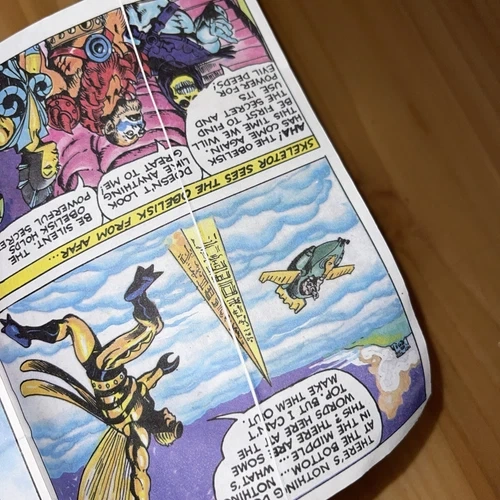 THERE'S NOTHING
AT THE BOTTOM... NOTHING
IN THE MIDDLE... WHAT'S
THIS? THERE ARE SOME
WORDS HERE AT THE
TOP, BUT I CAN'T
MAKE THEM OUT.
SKELETOR SEES THE OBELISK FROM AFAR...
AHA! THE OBELISK
HAS COME AGAIN.
THIS TIME WE WILL
BE FIRST TO FIND
THE SECRET AND
USE ITS
POWER FOR
EVIL DEEDS!
DOESN'T LOOK
LIKE ANYTHING
GREAT TO ME!
BE SILENT. THE
OBELISK HOLDS
POWERFUL